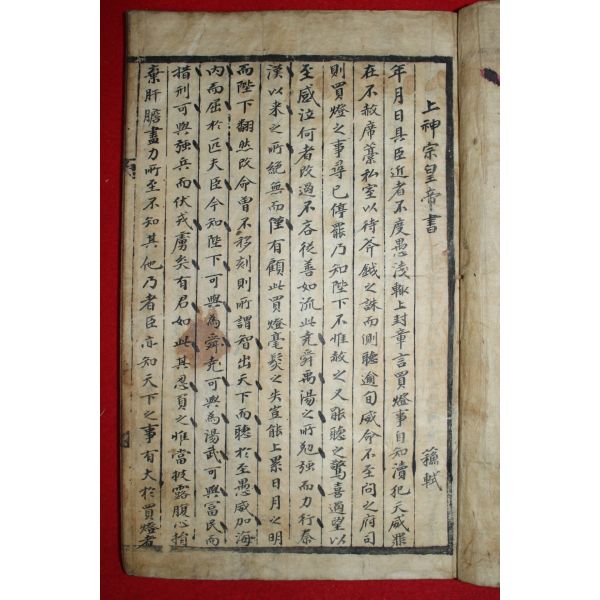 上神宗皇帝書
蘓軾
年月日具臣近者不度愚浅輙上封章言買燈事自知瀆犯天威罪
在不赦席藁私室以待斧鉞之誅而側聽逾旬威命不至問之府司
則買燈之事尋已停罷乃知陛下不惟赦之又能聽之驚喜過望以
至感泣何者改過不吝從善如流此堯舜禹湯之所勉強而力行秦
漢以来之所絶無而僅有顧此買燈毫髮之失豈能上累日月之明
而陛下翻然改命曾不移刻則所謂智出天下而聽於至愚威加海
内而屈於匹夫臣今知陛下可與為舜堯可與為湯武可與冨民而
措刑可與強兵而伏戎虜矣有君如此其忍負之惟當披露腹心捐
棄肝膽盡力所至不知其他乃者臣亦知天下之事有大於買燈者